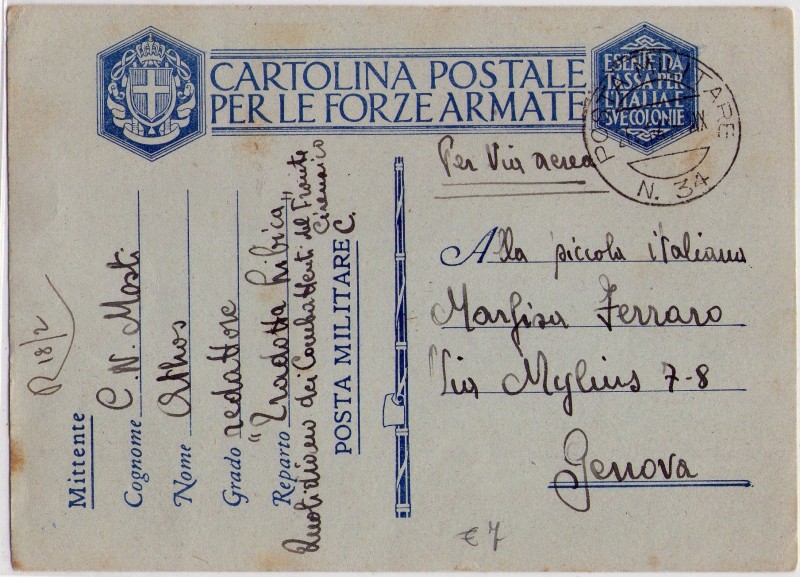 CARTOLINA POSTALE
PER LE FORZE ARMATE
ESENTE DA
TASSA PER
L'ITALIA E
SVE COLONIE
POSTA MILITARE
N. 34
Per Via aerea
Alla piccola italiana
Marfisa Ferraro
Via Mylius 7-8
Genova
R 18/2
Mittente
Cognome C.N. Mosti
Nome Athos
Grado redattore
Reparto "Tradotta Libica"
Quotidiano dei Combattenti del Fronte
Cirenaico
POSTA MILITARE C.
€ 7